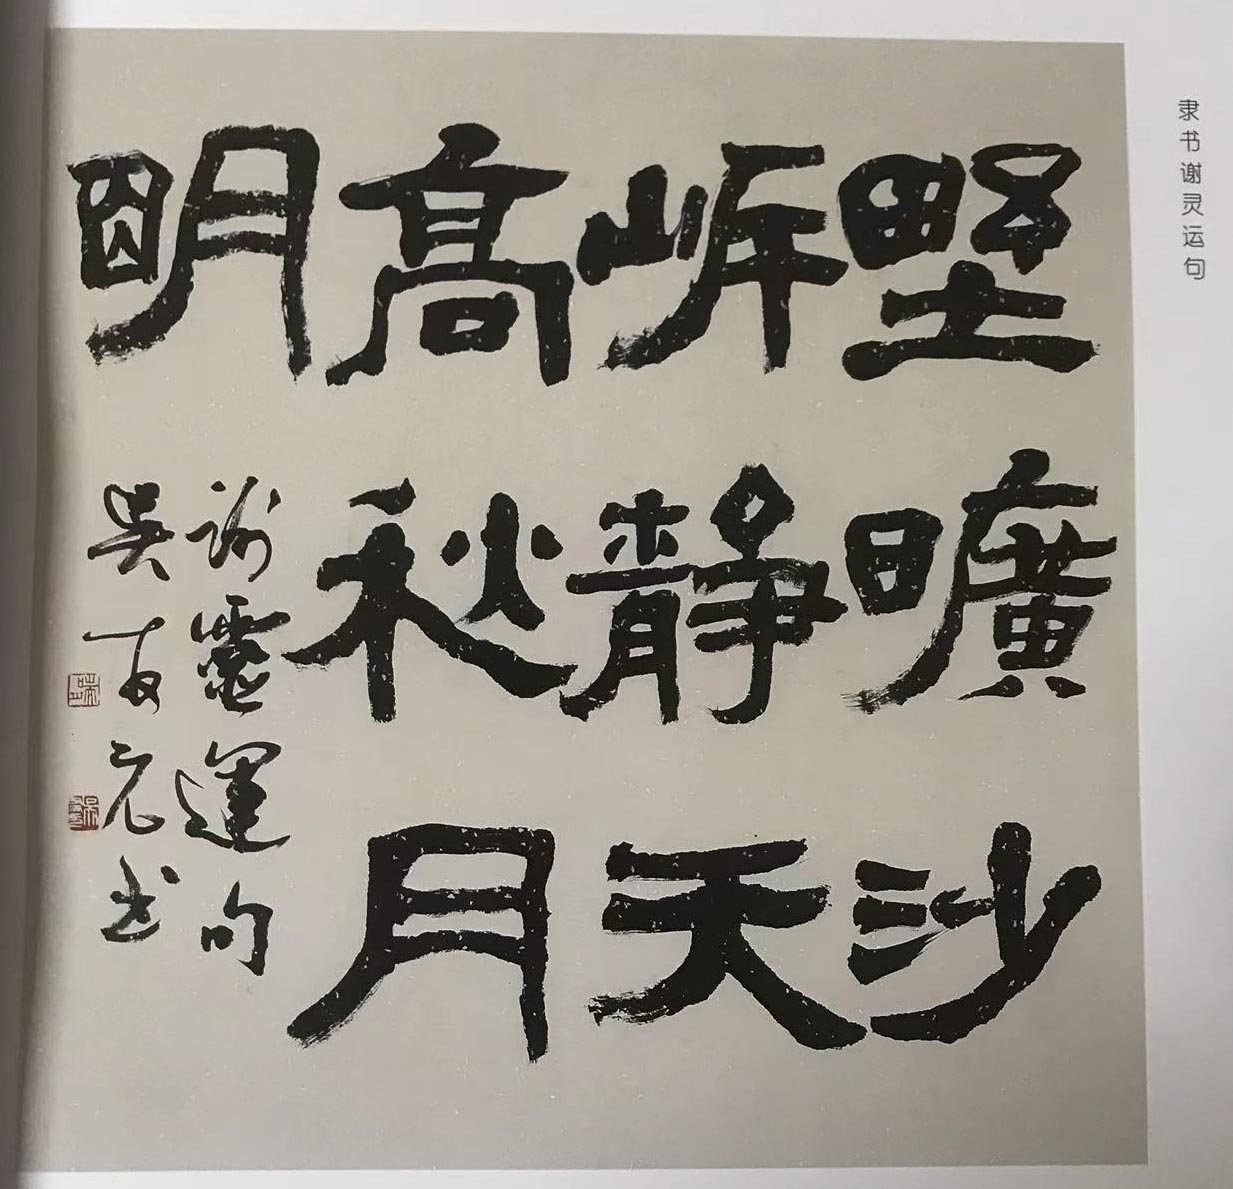 隶书谢灵运句
野曠沙
岸靜天
高秋月
明
謝靈運句
吳友元书